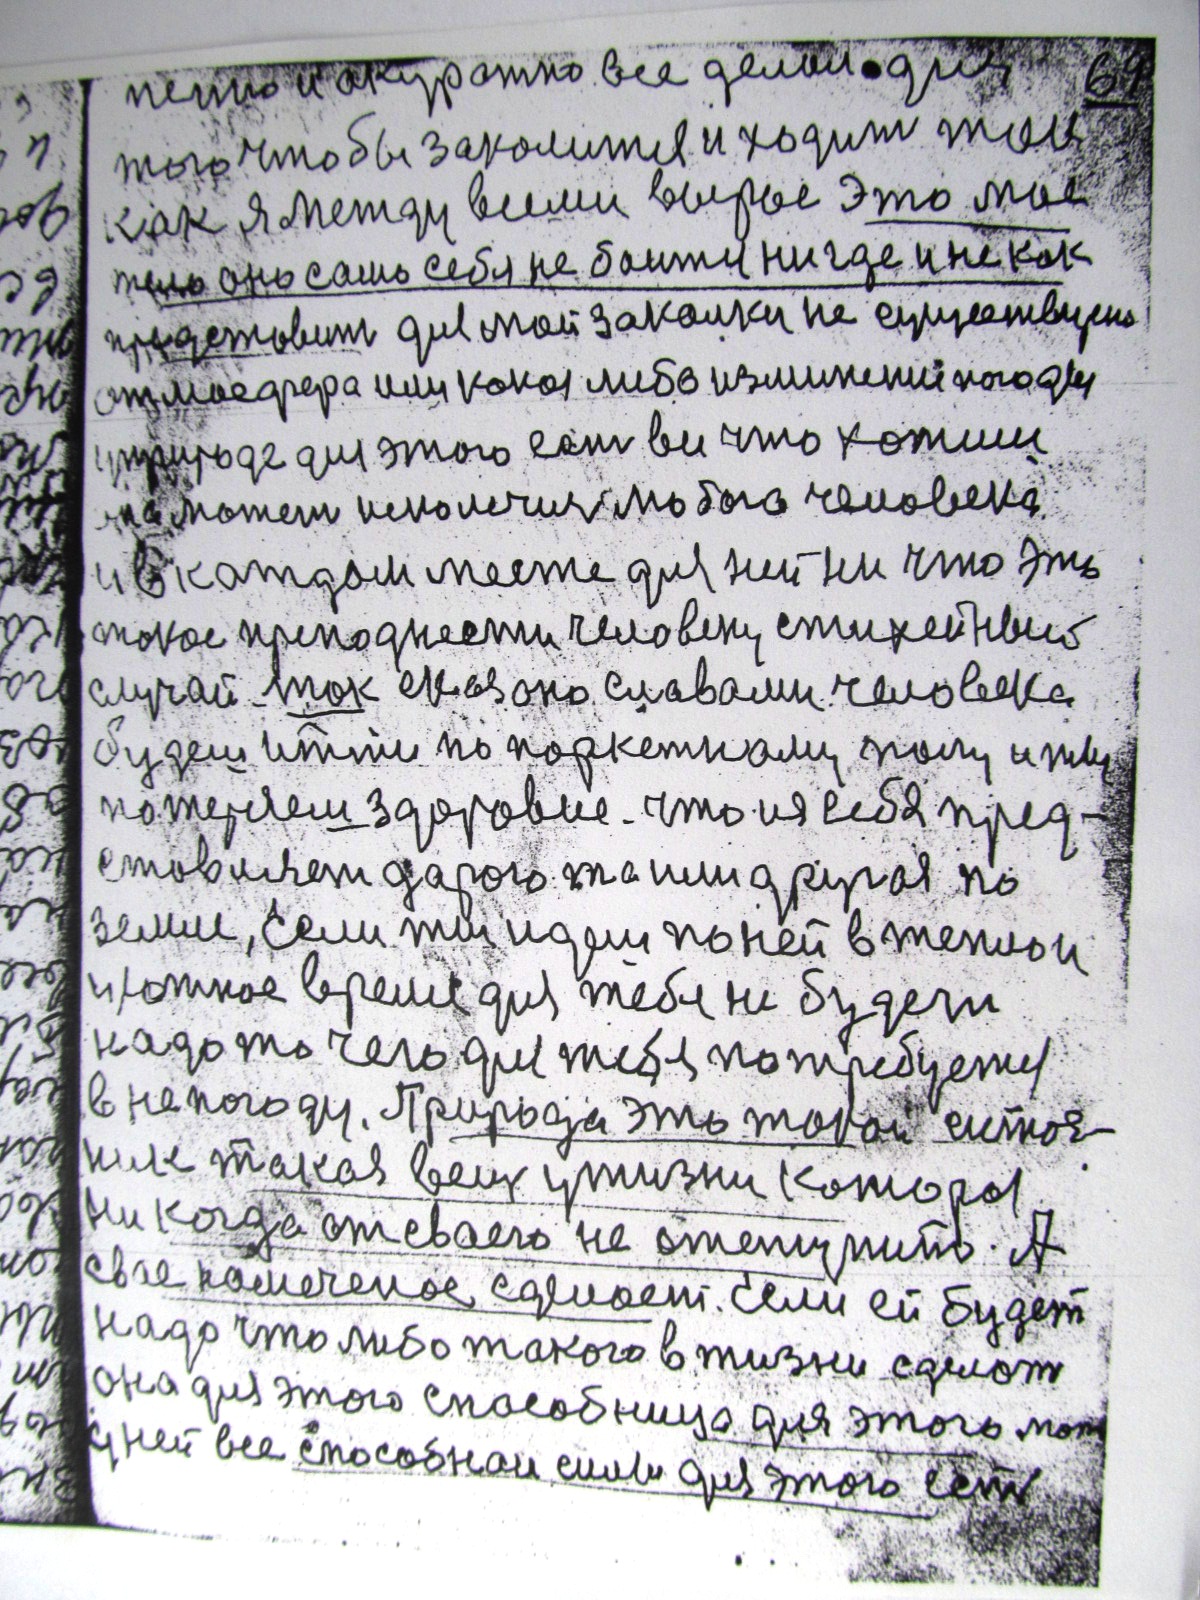 и акуратно все делои. для 69
того чтобы закалится и ходит так
как я между всеми вперые Это мое
тело оно само себя не боится нигде и не как
представит для мой закалки не существуено
атмосфера или какоя либо изминение погоды
у природе для этого есть все что хотиш
она может искалечия любого человека
и в каждом месте для ней ни что Эть
токое преподнести человеку стихейный
случай. так сказоно славами человека
будеш итти по паркетному полу и ты
потеряеш здоровие. что из себя пред-
стовляет дарого та или другая по
земли, Если ты идеш по ней в теплои
южное время для тебя не будечи
надо то чего для тебя потребуется
в непогоду. Природа эть такои систоя-
ник такая весих у жизни каторая
никогда от сваего не отступить. А
свае намеченое сделает. Если ей будет
надо что либо такого в жизни сделат
она для этого способница для этого мат
у ней все способнаи силы для этого есть